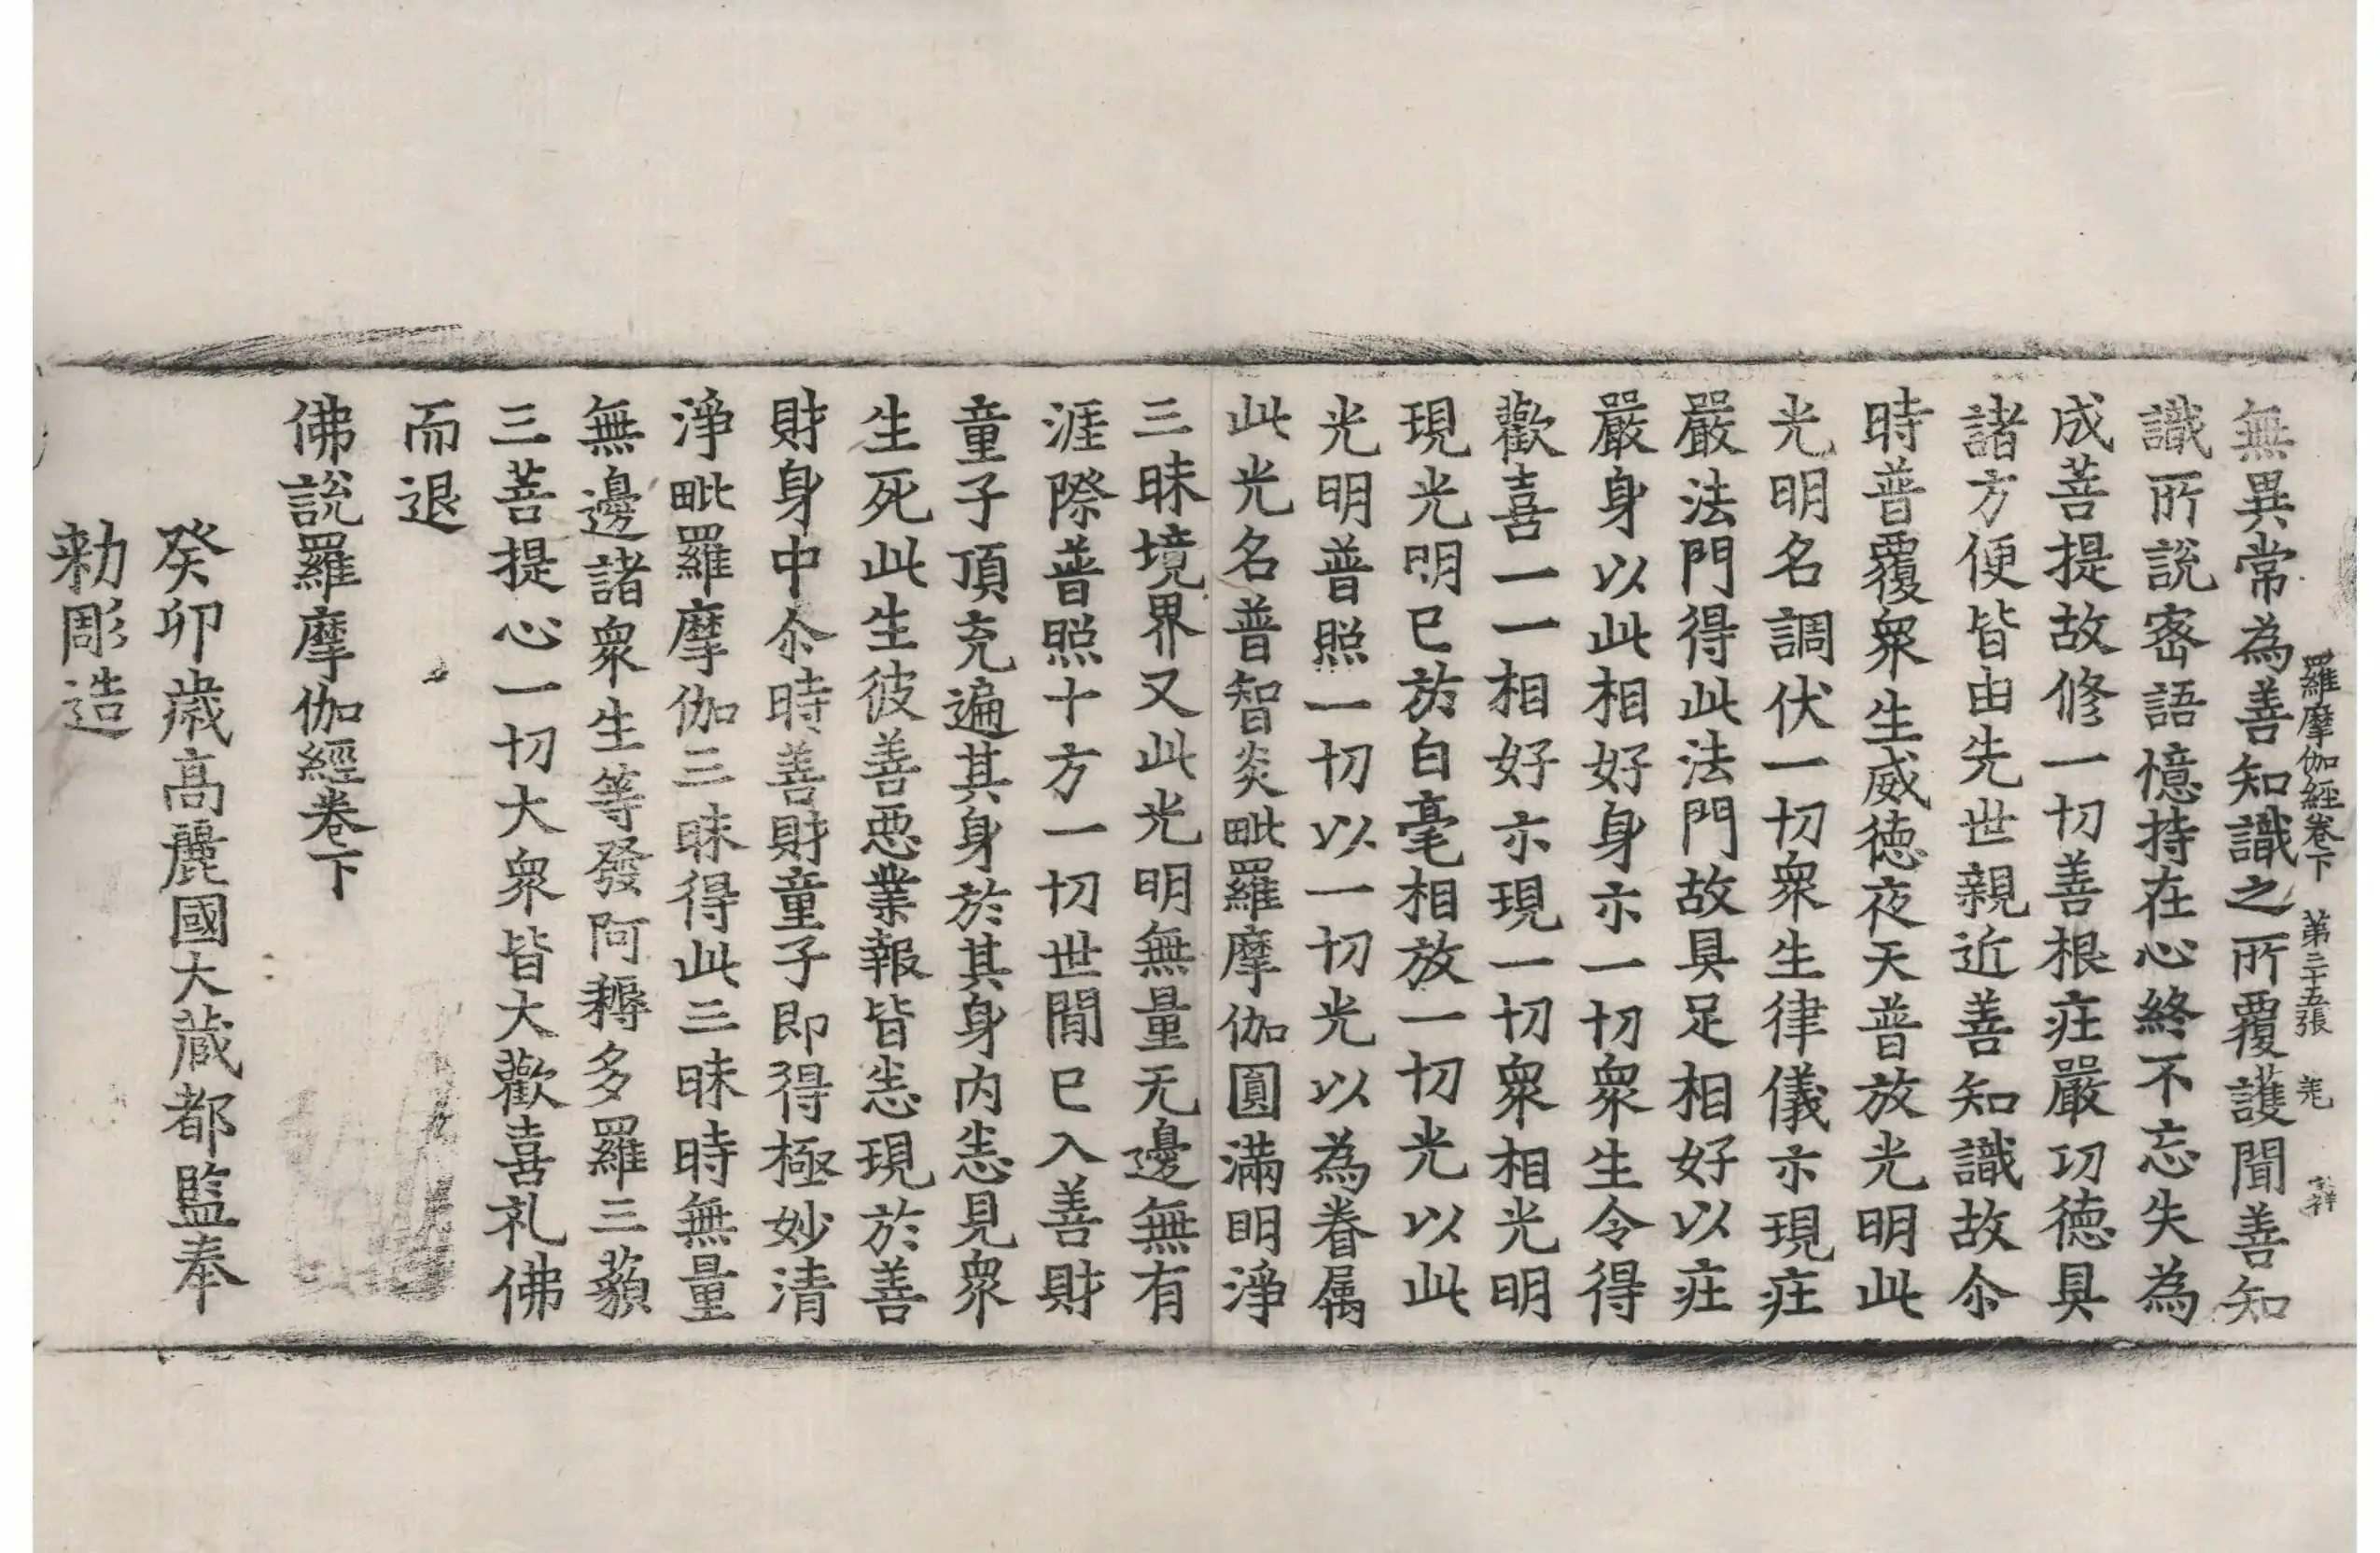 羅摩伽經卷下 第三十五張 羌
無異常為善知識之所覆護聞善知
識所說密語憶持在心終不忘失為
成菩提故修一切善根莊嚴功德具
諸方便皆由先世親近善知識故尒
時普覆衆生威德夜天普放光明此
光明名調伏一切衆生律儀亦現莊
嚴法門得此法門故具足相好以莊
嚴身以此相好身亦一切衆生令得
歡喜一一相好亦現一切衆相光明
現光明已於白毫相放一切光以此
光明普照一切以一切光以為眷属
此光名普智炎毗羅摩伽圓滿明淨
三昧境界又此光明無量无邊無有
涯際普照十方一切世閒已入善財
童子頂充遍其身於其身内悉見衆
生死此生彼善惡業報皆悉現於善
財身中尒時善財童子即得極妙清
淨毗羅摩伽三昧得此三昧時無量
無邊諸衆生等發阿耨多羅三藐
三菩提心一切大衆皆大歡喜礼佛
而退
佛說羅摩伽經卷下
癸卯歲高麗國大藏都監奉
勅彫造